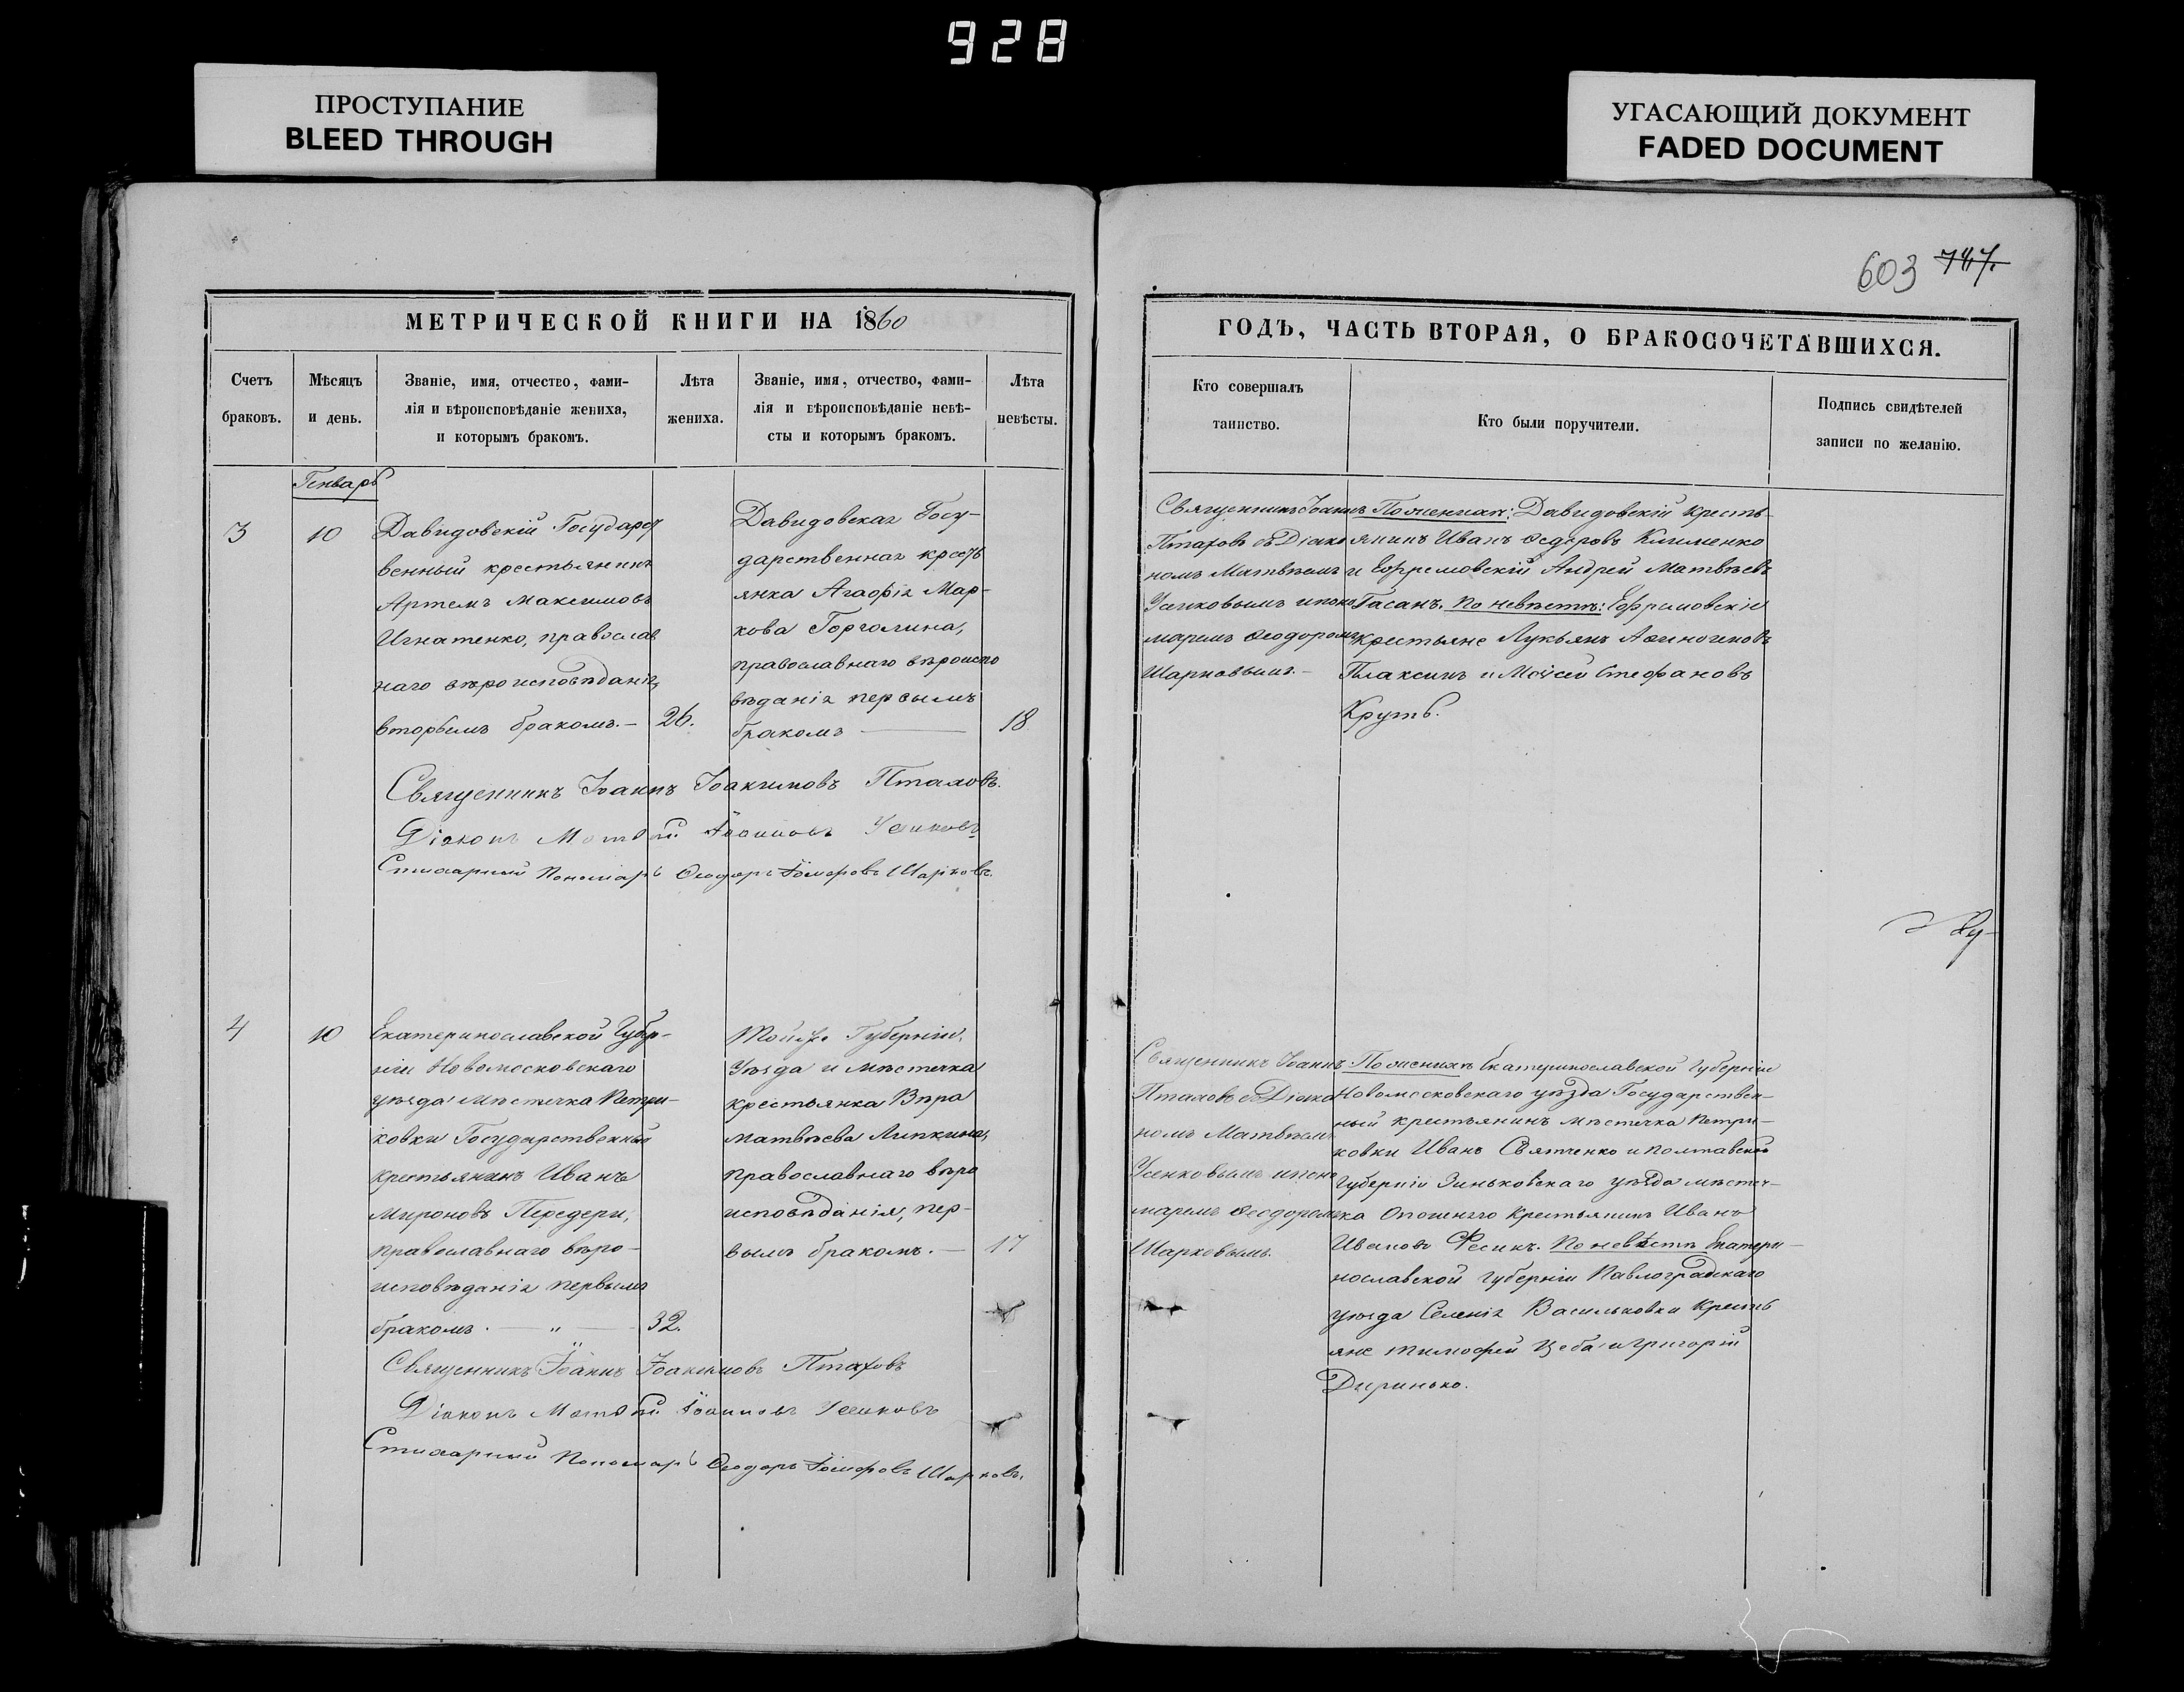 928
ПРОСТУПАНИЕ
BLEED THROUGH
УГАСАЮЩИЙ ДОКУМЕНТ
FADED DOCUMENT
603 747.
МЕТРИЧЕСКОЙ КНИГИ НА 1860
ГОДЪ, ЧАСТЬ ВТОРАЯ, О БРАКОСОЧЕТАВШИХСЯ.
Счетъ
браковъ.
Мѣсяцъ
и день.
Званіе, имя, отчество, фами-
лія и вѣроисповѣданіе жениха,
и которымъ бракомъ.
Лѣта
жениха.
Званіе, имя, отчество, фами-
лія и вѣроисповѣданіе невѣ-
сты и которымъ бракомъ.
Лѣта
невѣсты.
Кто совершалъ
таинство.
Кто были поручители.
Подпись свидѣтелей
записи по желанію.
Генварь
3
10
Давидовскій Государст
венный крестьянинъ
Артемъ Максимовъ
Игнатенко, православ
наго вѣроисповѣданія,
вторымъ бракомъ.—
26.
Давидовская Госу-
дарственная кресть
янка Агафія Мар-
кова Горголина,
православнаго вѣроиспо
вѣданія первымъ
бракомъ —
18
Священникъ Іоаннъ
Птаховъ съ Діако
номъ Матвѣемъ
Усиковымъ и поно
маремъ Ѳеодоромъ
Шарковымъ.—
По женихѣ: Давидовскій кресть-
янинъ Иванъ Ѳедоровъ Клименко
и Ефремовскій Андрей Матвѣевъ
Гасанъ. По невѣстѣ: Ефремовскіе
крестьяне Лукьянъ Аѳиногеновъ
Плаксинъ и Моѵсей Стефановъ
Круть.
Священникъ Іоаннъ Іоакимовъ Птаховъ.
Діаконъ Матѳій Іоанновъ Усиковъ
Стихарный Пономарь Ѳеодоръ Шарковъ.
4
10
Екатеринославской Губер-
ніи Новомосковскаго
уѣзда мѣстечка Петри-
ковки Государственный
крестьянинъ Иванъ
Мироновъ Передери,
православнаго вѣро-
исповѣданія первымъ
бракомъ. — " —
32.
Той же Губерніи,
Уѣзда и мѣстечка
крестьянка Вѣра
Матвѣева Липкина,
православнаго вѣро
исповѣданія, пер-
вымъ бракомъ. —
17
Священникъ Іоаннъ
Птаховъ съ Діако
номъ Матвѣемъ
Усиковымъ и поно
маремъ Ѳеодоромъ
Шарковымъ.
По женихѣ Екатеринославской Губерніи
Новомосковскаго уѣзда Государствен-
ный крестьянинъ мѣстечка Петри-
ковки Иванъ Святченко и Полтавской
Губерніи Зиньковскаго уѣзда мѣстеч-
ка Опошняго крестьянинъ Иванъ
Ивановъ Фесикъ. По невѣстѣ Екатери-
нославской губерніи Павлоградскаго
уѣзда Селенія Васильковки кресть
яне Тимофей Цеба и Григорій
Диринько.
Священникъ Іоаннъ Іоакимовъ Птаховъ
Діаконъ Матѳій Іоанновъ Усиковъ
Стихарный Пономарь Ѳеодоръ Шарковъ.